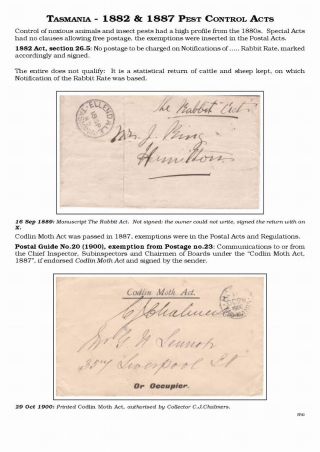 TASMANIA - 1882 & 1887 PEST CONTROL ACTS
Control of noxious animals and insect pests had a high profile from the 1880s. Special Acts
had no clauses allowing free postage, the exemptions were inserted in the Postal Acts.
1882 Act, section 26.5: No postage to be charged on Notifications of ..... Rabbit Rate, marked
accordingly and signed.
The entire does not qualify: It is a statistical return of cattle and sheep kept, on which
Notification of the Rabbit Rate was based.
The Rabbit Act
Mr J. King
Hamilton
16 Sep 1889: Manuscript The Rabbit Act. Not signed: the owner could not write, signed the return with an
X.
Codlin Moth Act was passed in 1887, exemptions were in the Postal Acts and Regulations.
Postal Guide No.20 (1900), exemption from Postage no.23: Communications to or from
the Chief Inspector, Subinspectors and Chairmen of Boards under the "Codlin Moth Act,
1887", if endorsed Codlin Moth Act and signed by the sender.
Codlin Moth Act.
CJChalmers
Mr G N Lennox
357 Liverpool St
Or Occupier.
29 Oct 1900: Printed Codlin Moth Act, authorised by Collector C.J.Chalmers.